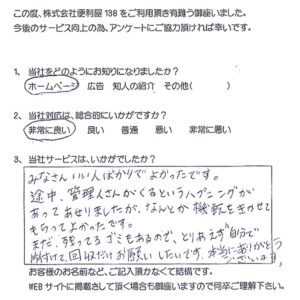 この度、株式会社便利屋138をご利用頂き有難う御座いました。
今後のサービス向上の為、アンケートにご協力頂ければ幸いです。
1、当社をどのようにお知りになりましたか？
ホームページ 広告 知人の紹介 その他( )
2、当社対応は、総合的にいかがですか？
非常に良い 良い 普通 悪い 非常に悪い
3、当社サービスは、いかがでしたか？
みなさんいい人ばかりでよかったです。
途中、管理人さんがくるというハプニングが
あってあせりましたが、なんとか機転をきかせて
もらってよかったです。
まだ、残ってるゴミもあるので、とりあえず自分で
片付けて、回収だけお願いしたいです。本当にありがとう
ございました。
お客様のお名前など、ご記入頂かなくて結構です。
WEBサイトに掲載させて頂く場合も御座いますので何卒ご理解下さい。